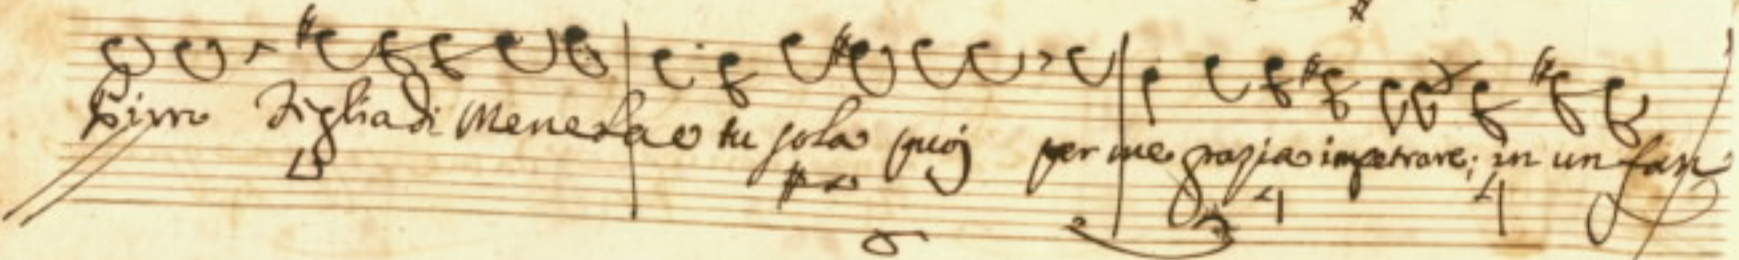 Pirro Figlia di Menelao tu sola puoj per me grazia impetrare; in un fan